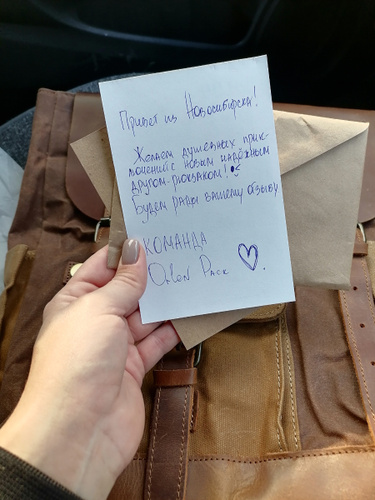 Привет из Новосибирска!
Желаем душевных прик-
лючений с новым надёжным
другом-рюкзаком!
Будем рады вашему отзыву
КОМАНДА
Orlen Pack